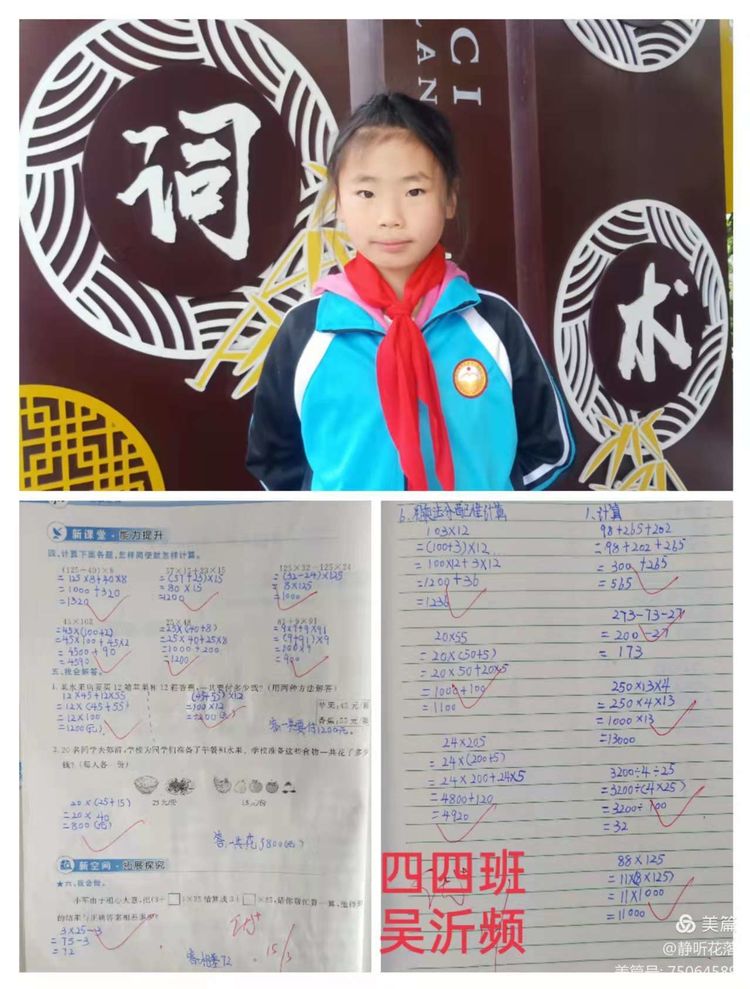 CI
LAN
词
术
新课堂·能力提升
四、计算下面各题,怎样简便就怎样计算。
(125+40)×8
=125×8+40×8
=1000+320
=1320
57×15+23×15
=(57+23)×15
=80×15
=1200
125×32-125×24
=(32-24)×125
=8×125
=1000
45×102
=45×(100+2)
=45×100+45×2
=4500+90
=4590
25×48
=25×(40+8)
=25×40+25×8
=1000+200
=1200
81+9×91
=9×9+9×91
=(9+91)×9
=100×9
=900
五、我会解答。
1.某水果店要买12箱苹果和12箱香蕉,一共要付多少钱?(用两种方法解答)
12×45+12×55
=12×(45+55)
=12×100
=1200(元)
(45+55)×12
=100×12
=1200(元)
苹果:45元/箱
香蕉:55元/箱
答:一共要付1200元。
2.20名同学去郊游,学校为同学们准备了午餐和水果。学校准备这些食物一共花了多少
钱?(每人各一份)
25元/份
15元/份
20×(25+15)
=20×40
=800(元)
答:一共花了800(元)
新空间·拓展探究
★六、我会做。
小军由于粗心大意,把(3+□)×25错算成3+□×25,请你帮忙算一算,他得到
的结果与正确答案相差多少?
3×25-3
=75-3
=72
答:相差72
6.用乘法分配律计算
103×12
=(100+3)×12
=100×12+3×12
=1200+36
=1236
20×55
=20×(50+5)
=20×50+20×5
=1000+100
=1100
24×205
=24×(200+5)
=24×200+24×5
=4800+120
=4920
1.计算
98+265+202
=98+202+265
=300+265
=565
273-73-27
=200-27
=173
250×13×4
=250×4×13
=1000×13
=13000
3200÷4÷25
=3200÷(4×25)
=3200÷100
=32
88×125
=11×(8×125)
=11×1000
=11000
四四班
吴沂频
美篇
@静听花落
美篇号: 75064589